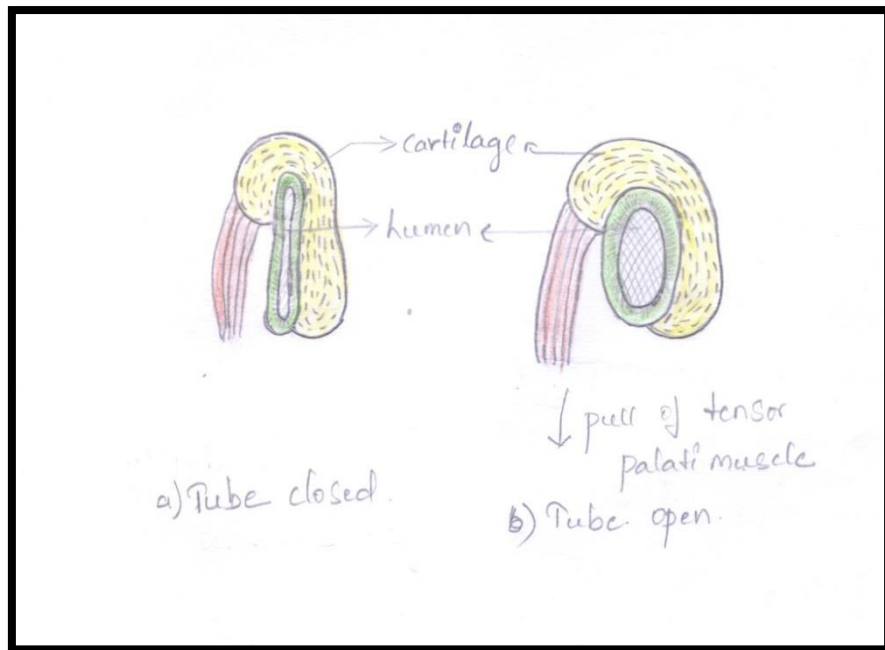 cartilage
Lumen
↓ pull of tensor
palati muscle
a) Tube closed.
b) Tube open.